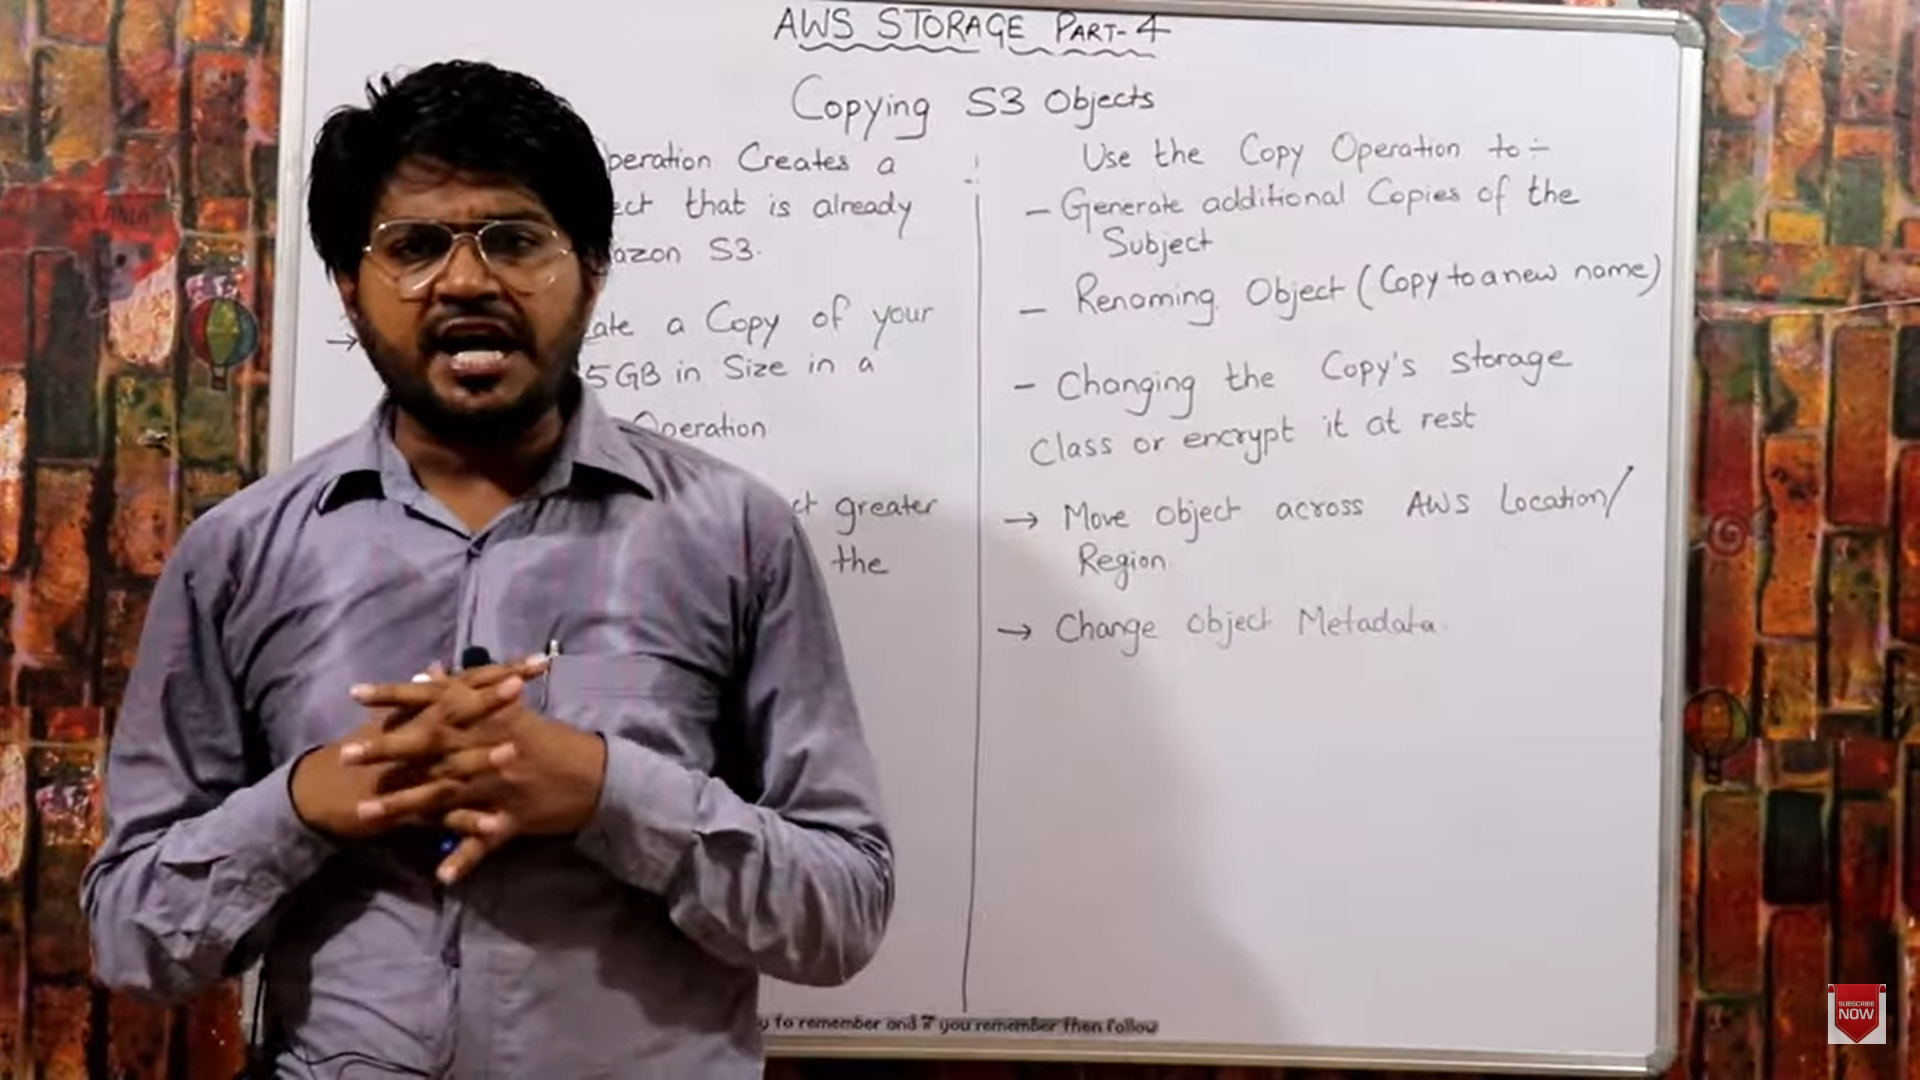 AWS STORAGE PART-4
Copying S3 Objects
peration Creates a
ect that is already
azon S3.
→ ate a Copy of your
5GB in Size in a
Operation
ct greater
the
Use the Copy Operation to ÷
— Generate additional Copies of the
Subject
— Renaming Object (Copy to a new name)
— Changing the Copy's storage
Class or encrypt it at rest
→ Move object across AWS Location/
Region
→ Change object Metadata
y to remember and if you remember then follow
SUBSCRIBE
NOW